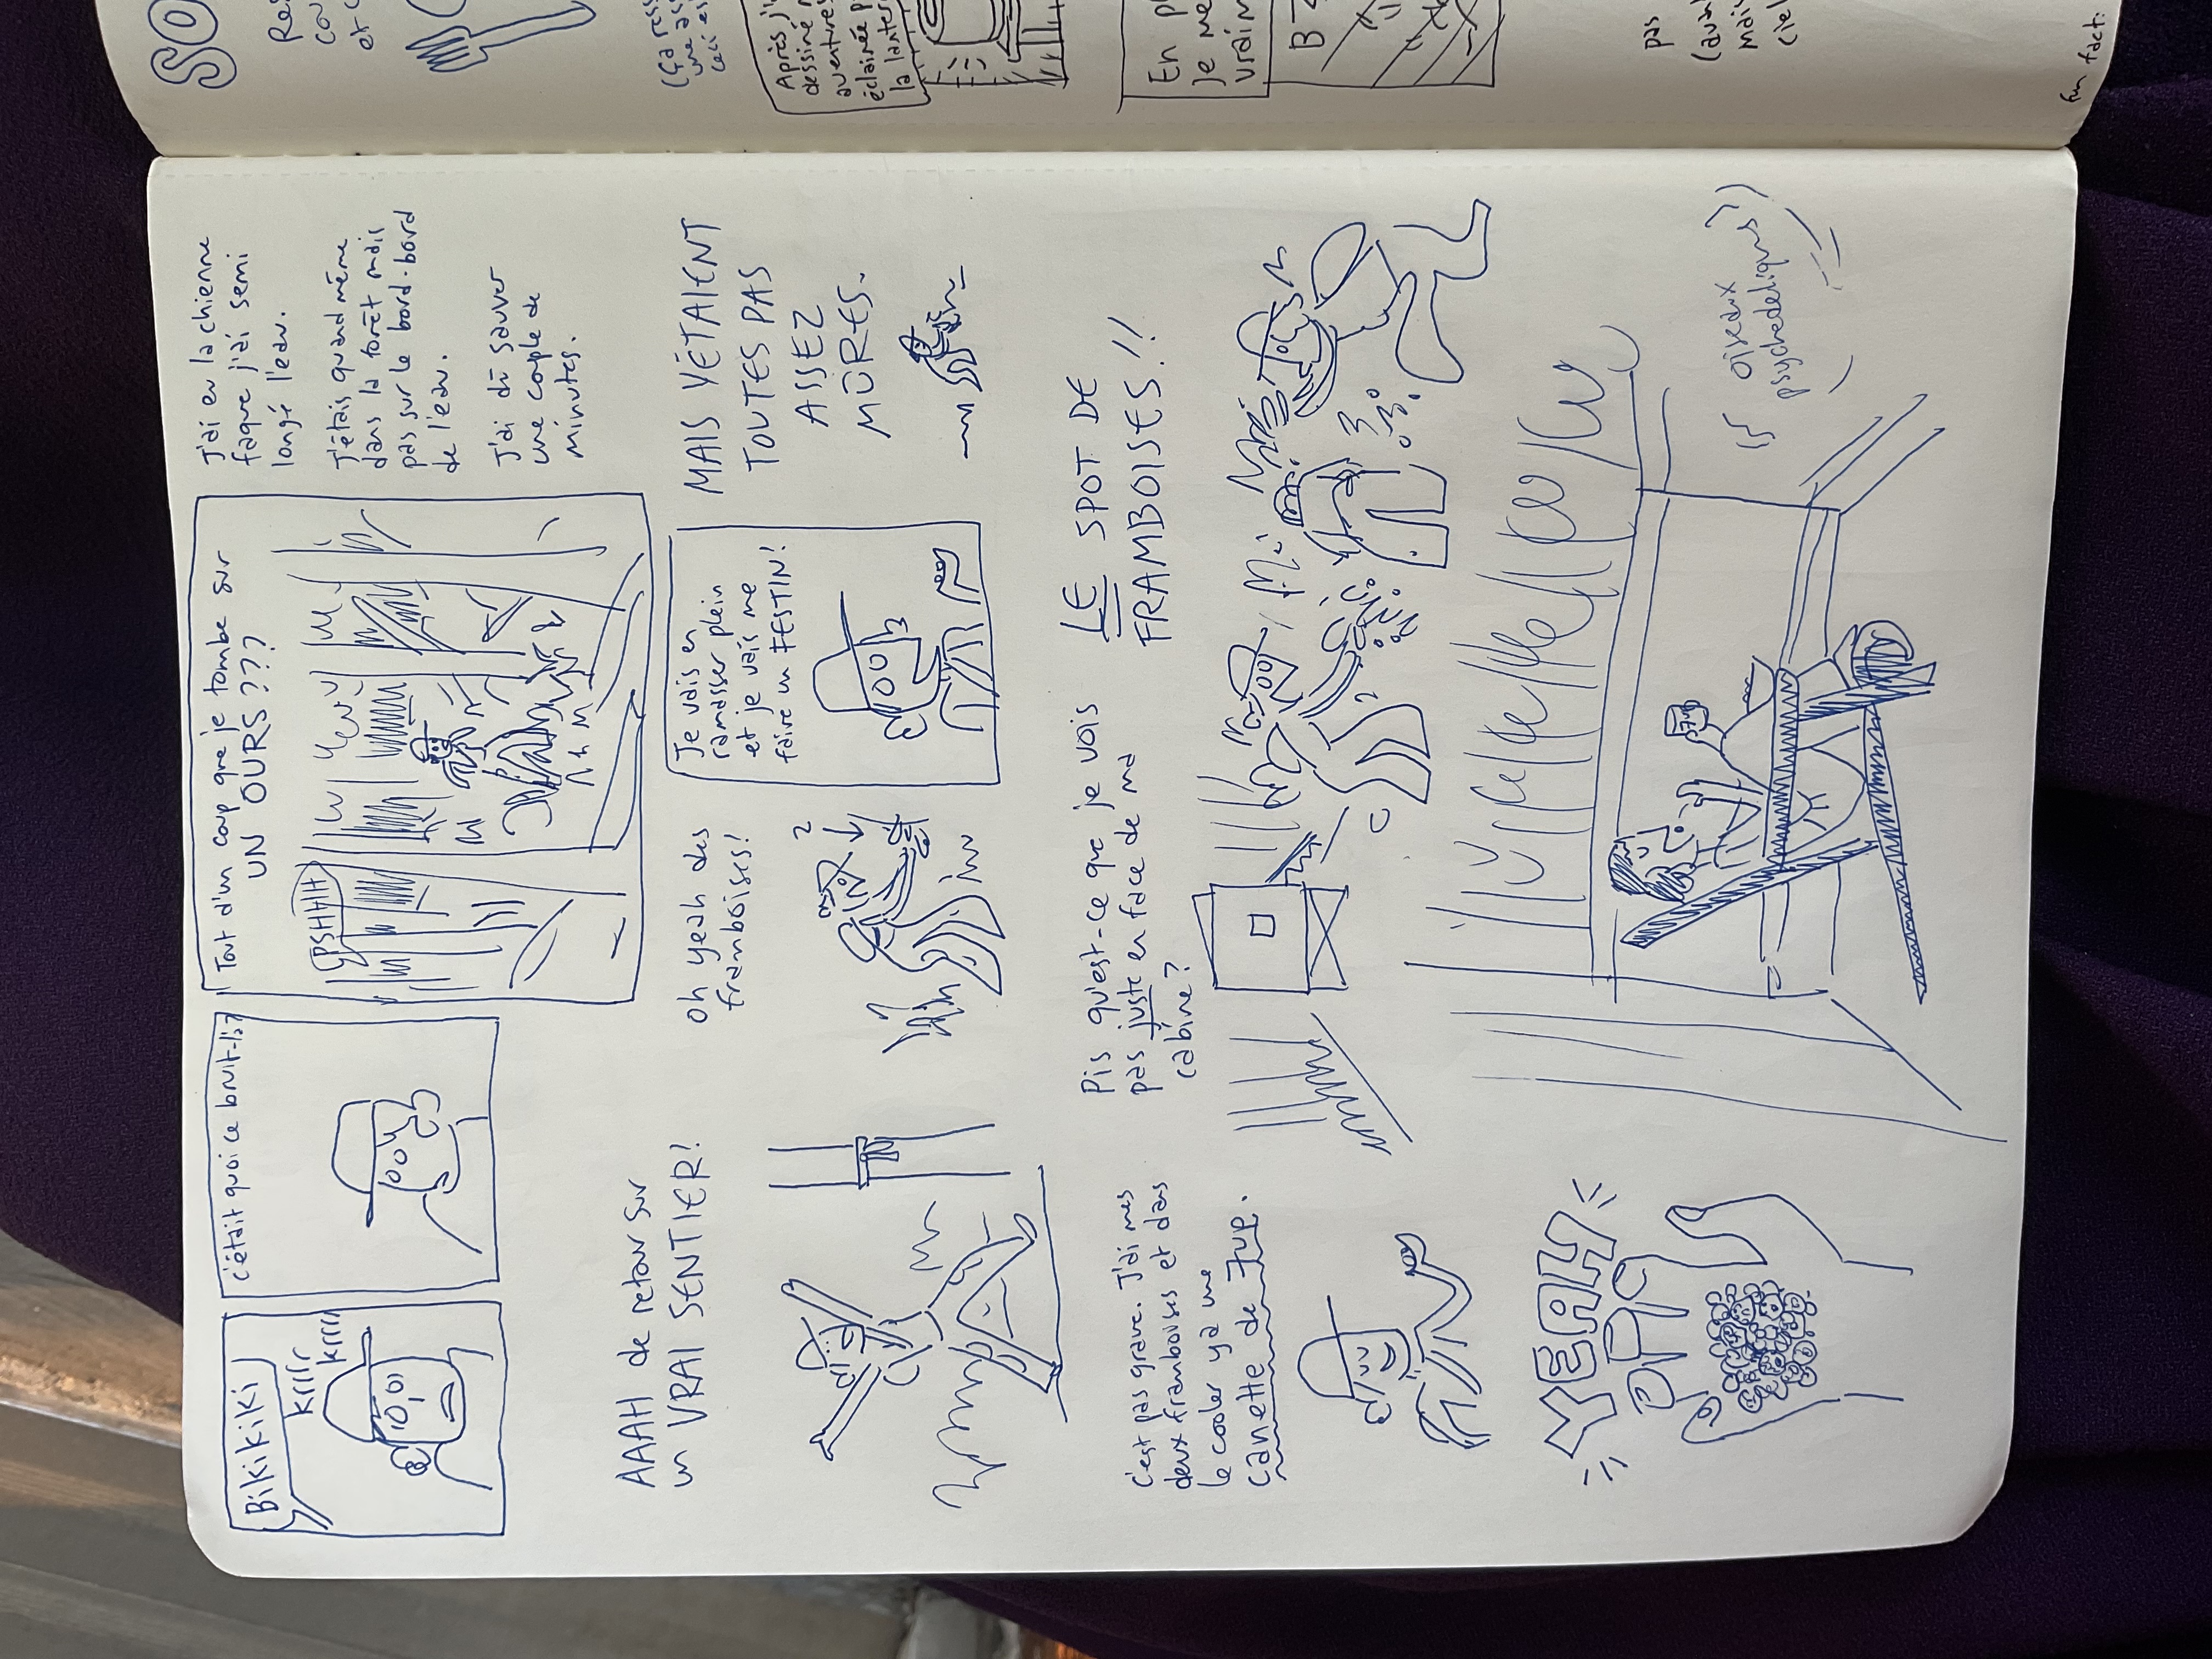 Bikikiki
krrrr
krrrr
c'était quoi ce bruit-là?
Tout d'un coup que je tombe sur
UN OURS???
PSHHHH
J'ai eu la chienne
faque j'ai semi
longé l'eau.
J'étais quand même
dans la forêt mais
pas sur le bord-bord
de l'eau.
J'ai dû sauver
une couple de
minutes.
AAAH de retour sur
un VRAI SENTIER!
oh yeah des
framboises!
2
Je vais en
ramasser plein
et je vais me
faire un FESTIN!
MAIS Y'ÉTAIENT
TOUTES PAS
ASSEZ
MÛRES.
c'est pas grave. J'ai mes
deux framboises et dans
le cooler ya une
canette de 7up.
Pis qu'est-ce que je vois
pas juste en face de ma
cabine?
LE SPOT DE
FRAMBOISES!!
YEAH
oiseaux
psychedeliques
SO
Après j'
dessiné
aventures
éclairée p
la lanter
En pl
je me
vraim
B
pas
(avai
mais
ciel
fun fact: